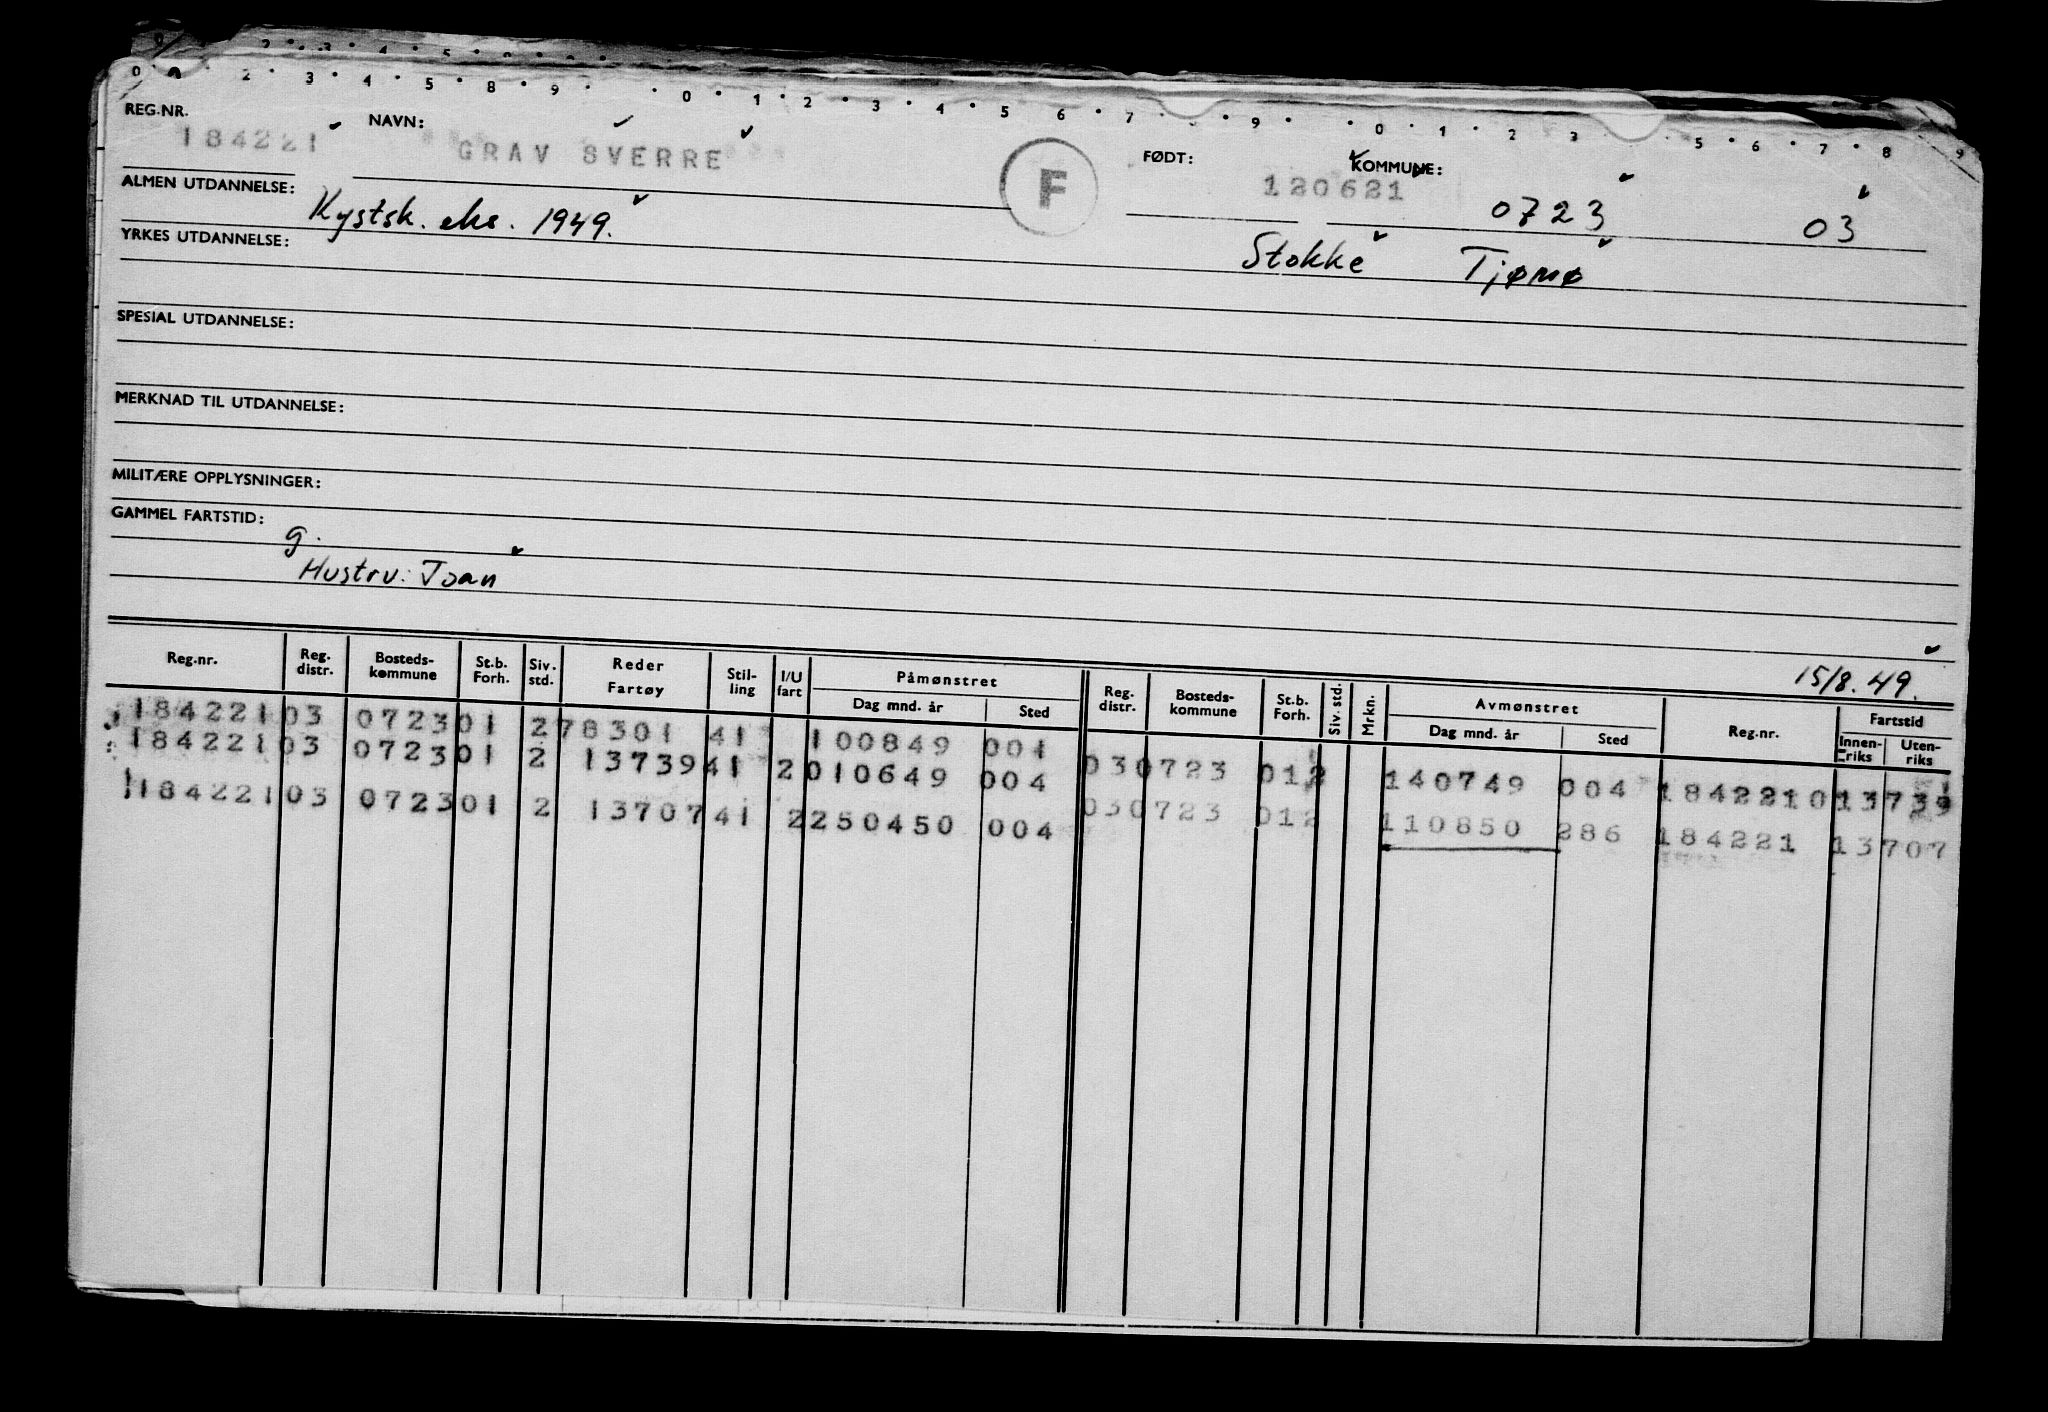 0 · 2 · 3 · 4 · 5 · 8 · 9 · · 0 · 1 · 2 · 3 · 4 · 5 6 · 7 · 9 · · 0 · 1 · 2 3 · 5 · 6 · 7 · 8 9
REG.NR. NAVN: FØDT: KOMMUNE:
184221 GRAV SVERRE F 120621 0723 03
ALMEN UTDANNELSE: Kystsk. eks. 1949. Stokke Tjømø
YRKES UTDANNELSE:
SPESIAL UTDANNELSE:
MERKNAD TIL UTDANNELSE:
MILITÆRE OPPLYSNINGER:
GAMMEL FARTSTID: g.
Hustru: Joan
15/8.49.
Reg.nr. Reg. distr. Bosteds-kommune St.b. Forh. Siv. std. Reder Fartøy Stil-ling I/U fart Påmønstret Dag mnd. år Sted Reg. distr. Bosteds-kommune St.b. Forh. Siv. std. Mrkn. Avmønstret Dag mnd. år Sted Reg.nr. Fartstid Innen-riks Uten-riks
184221 03 0723 01 2 78301 41 100849 001
184221 03 0723 01 2 13739 41 2 010649 004 03 0723 01 2 140749 004 184221 0 13739
184221 03 0723 01 2 13707 41 2 250450 004 03 0723 01 2 110850 286 184221 13707